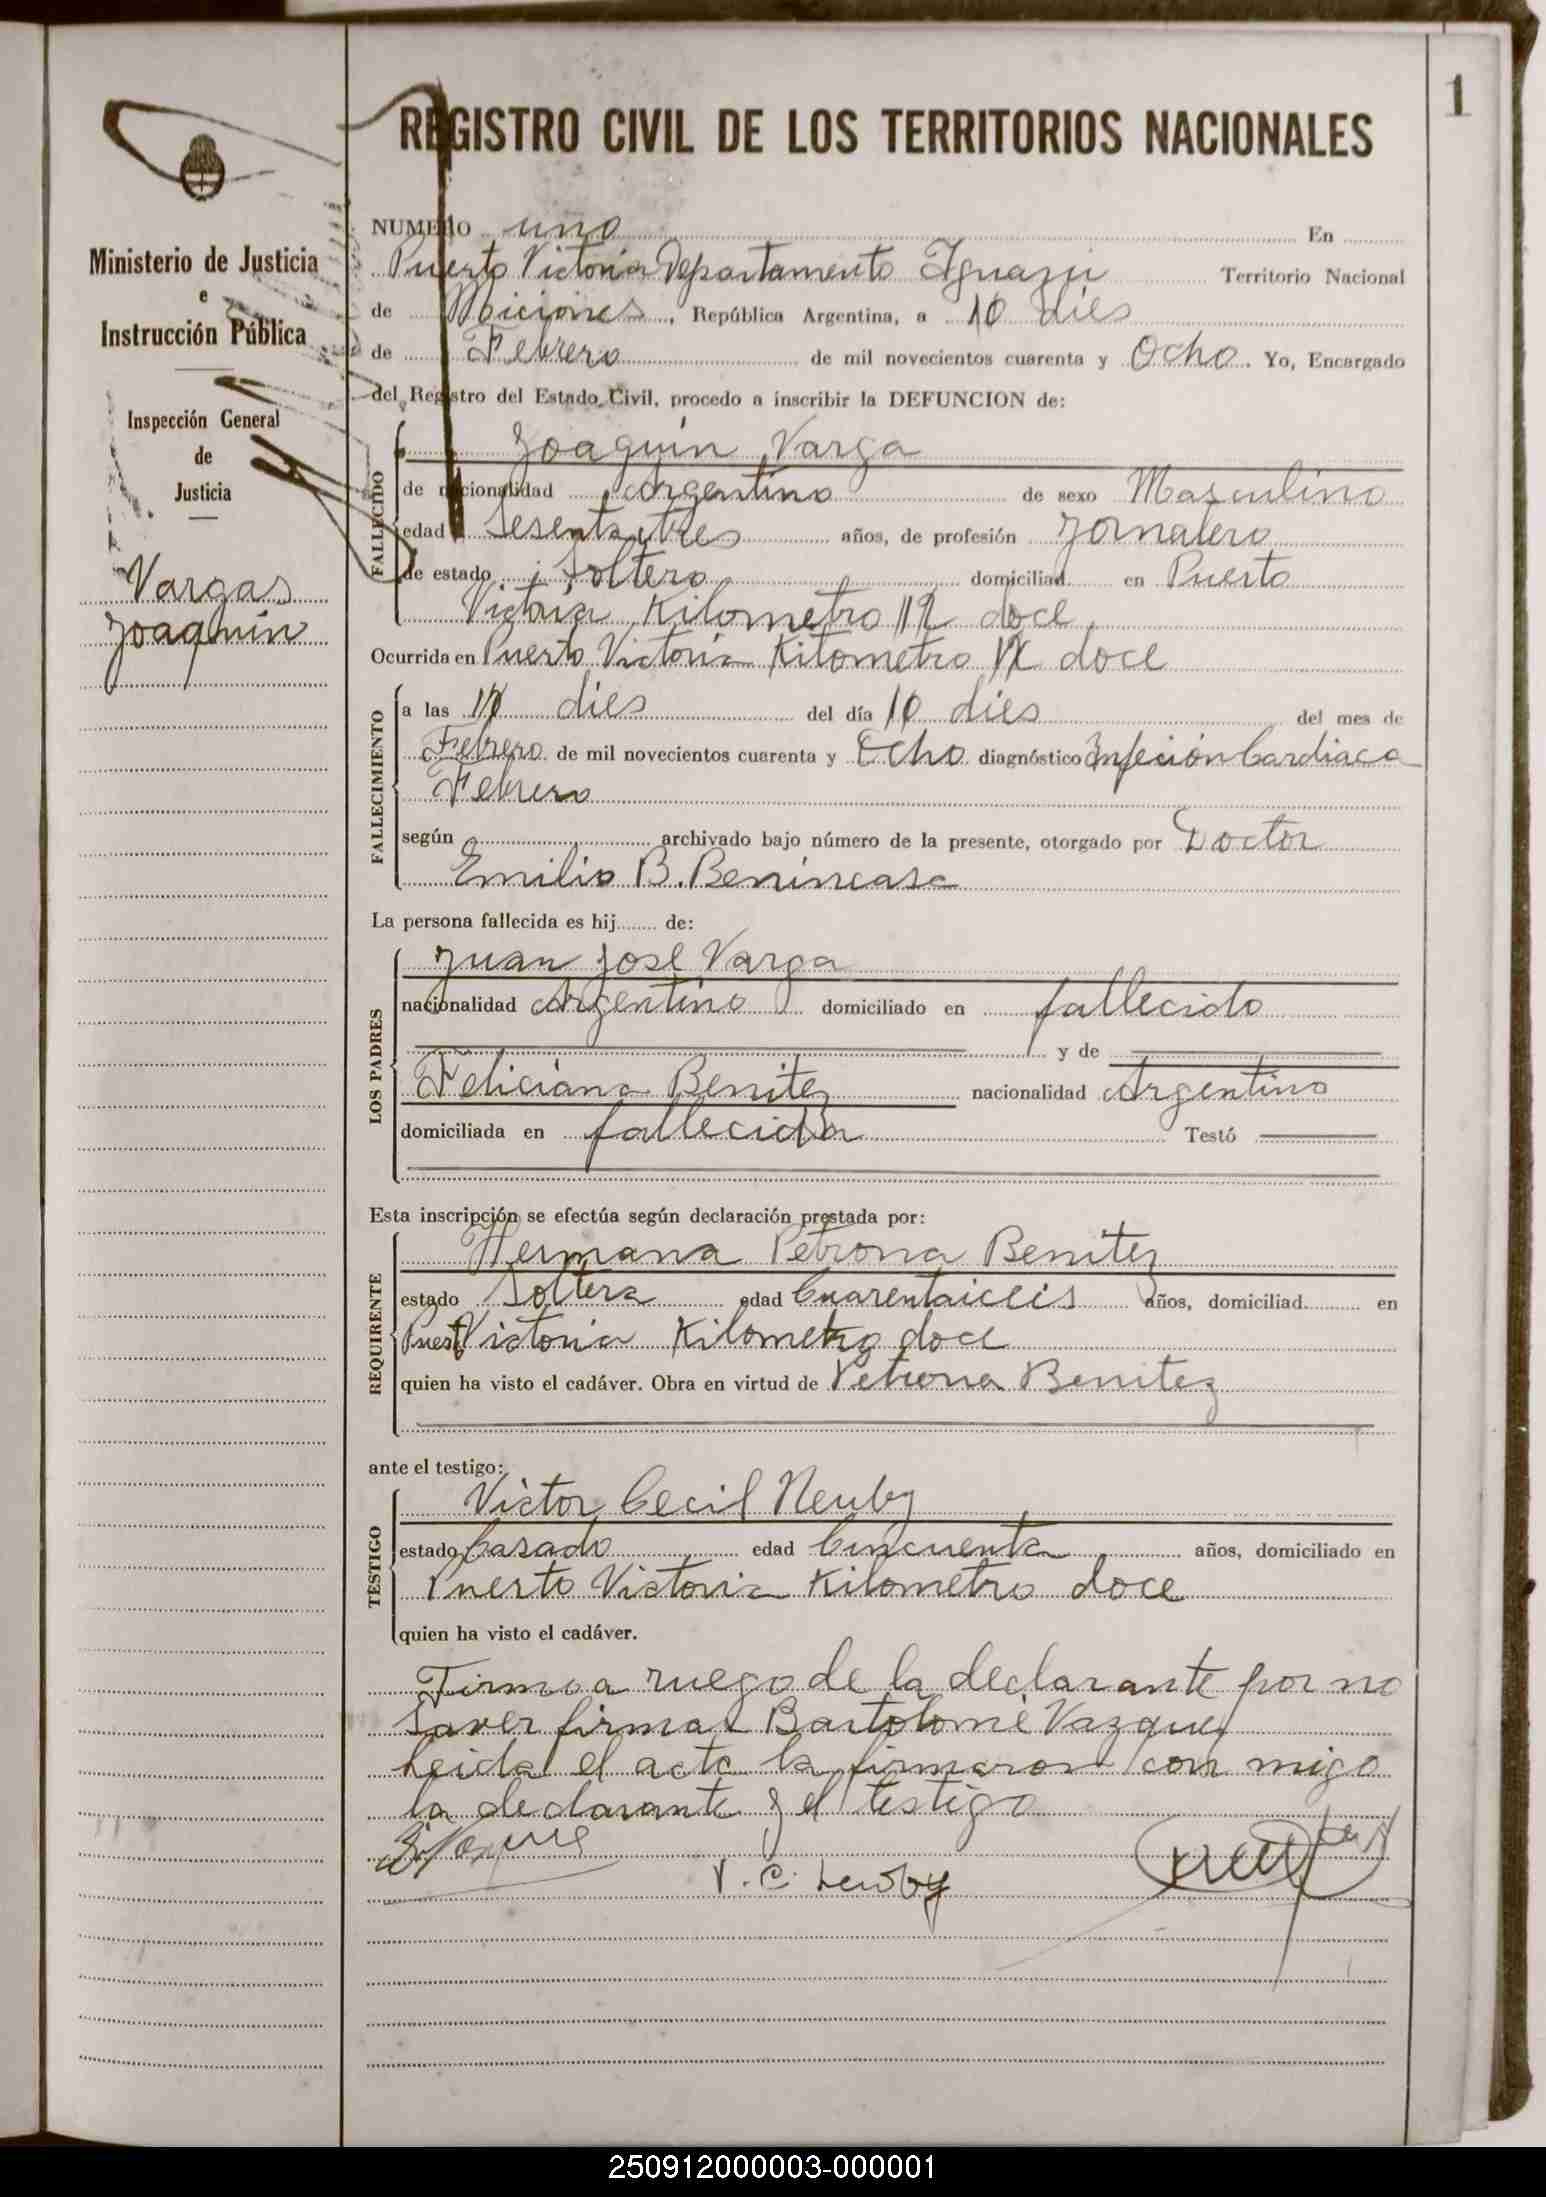 1
REGISTRO CIVIL DE LOS TERRITORIOS NACIONALES
Ministerio de Justicia
e
Instrucción Pública
Inspección General
de
Justicia
Vargas
Joaquín
NUMERO uno En
Puerto Victoria Departamento Iguazú Territorio Nacional
de Miciones, República Argentina, a 10 dies
de Febrero de mil novecientos cuarenta y Ocho. Yo, Encargado
del Registro del Estado Civil, procedo a inscribir la DEFUNCION de:
FALLECIDO
Joaquín Varga
de nacionalidad Argentino de sexo Masculino
edad Sesentaitres años, de profesión Jornalero
de estado Soltero domiciliad en Puerto
Victoria Kilometro 12 doce
Ocurrida en Puerto Victoria Kilometro doce
FALLECIMIENTO
a las dies del día 10 dies del mes de
Febrero de mil novecientos cuarenta y Ocho diagnóstico Infeción Cardiaca
Febrero
según archivado bajo número de la presente, otorgado por Doctor
Emilio B. Benincasa
La persona fallecida es hij de:
LOS PADRES
Juan José Varga
nacionalidad Argentino domiciliado en fallecido
y de
Feliciana Benitez nacionalidad Argentino
domiciliada en fallecida Testó
Esta inscripción se efectúa según declaración prestada por:
REQUIRENTE
Hermana Petrona Benitez
estado Soltera edad Cuarentaiceis años, domiciliad en
Puerto Victoria Kilometro doce
quien ha visto el cadáver. Obra en virtud de Petrona Benitez
ante el testigo:
TESTIGO
Victor Cecil Neuby
estado Casado edad Cincuenta años, domiciliado en
Puerto Victoria Kilometro doce
quien ha visto el cadáver.
Firmo a ruego de la declarante por no
saver firmar Bartolomé Vazquez
Leida el acta la firmaron con migo
la declarante y el testigo
V. C. Newby
250912000003-000001